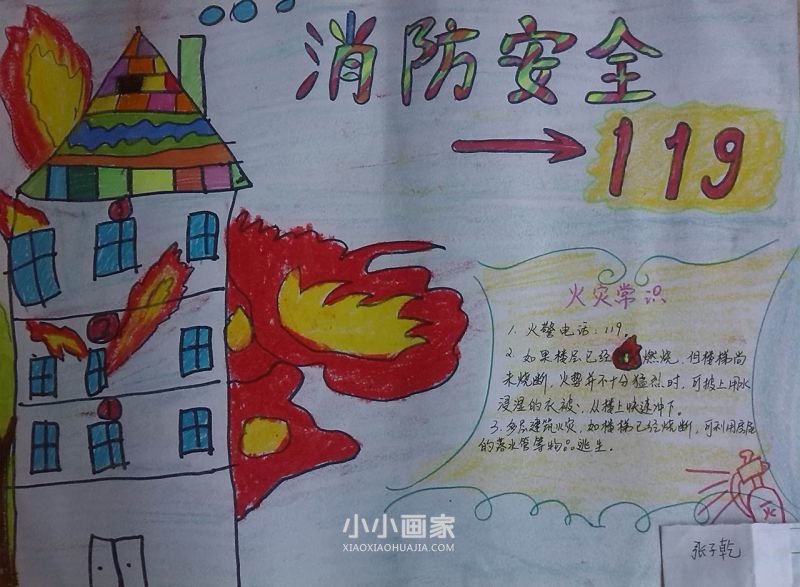 消防安全
119
火灾常识
1. 火警电话:119。
2. 如果楼层已经燃烧,但楼梯尚
未烧断,火势并不十分猛烈时,可披上用水
浸湿的衣被,从楼上快速冲下。
3. 多层建筑火灾,如楼梯已经烧断,可利用房屋
的落水管等物品逃生。
火
张子乾
小小画家
XIAOXIAOHUAJIA.COM